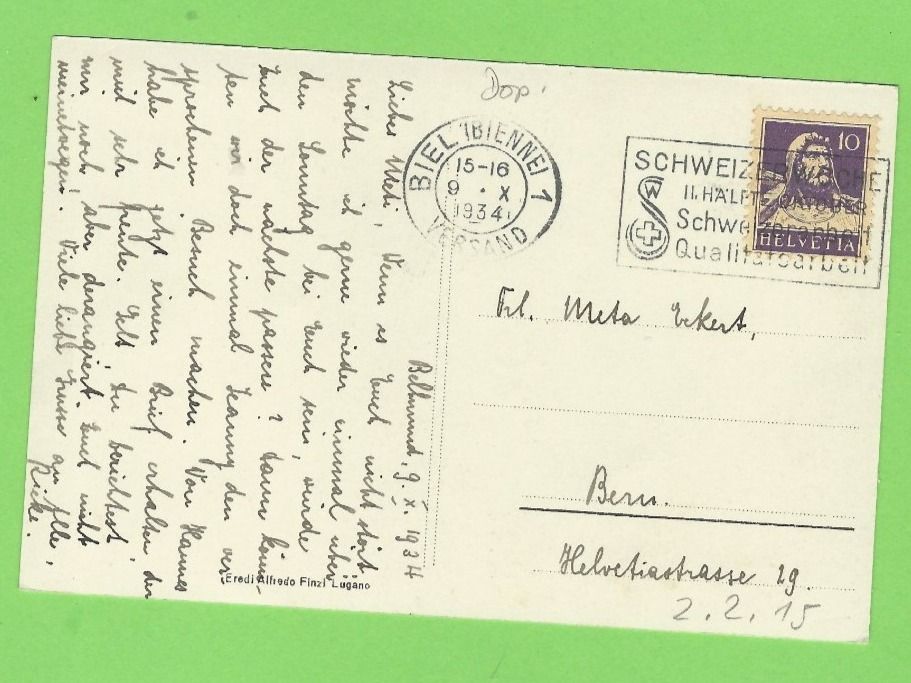 Dop.
BIEL (BIENNE) 1
15-16
9 · X
1934
VERSAND
SCHWEIZERWOCHE
W
II. HÄLFTE OKTOBER
Schweizerarbeit
Qualitätsarbeit
10
HELVETIA
Frl. Meta Eckert,
Bern.
Helvetiastrasse 29.
2.2.15
Bellmund, 9. X. 1934
Liebes Meti, Wenn es Euch nicht stört
möchte ich gerne wieder einmal über
den Sonntag bei Euch sein, würde
Euch der nächste passen? Dann könn-
ten wir doch einmal Jeanny den ver-
sprochenen Besuch machen. Von Hannes
habe ich jetzt einen Brief erhalten, der
mich sehr freute. Gelt Du berichtest
mir noch, aber derangiert Euch nicht
meinetwegen! Viele liebe Grüsse an Alle,
Rieke.
Eredi Alfredo Finzi Lugano